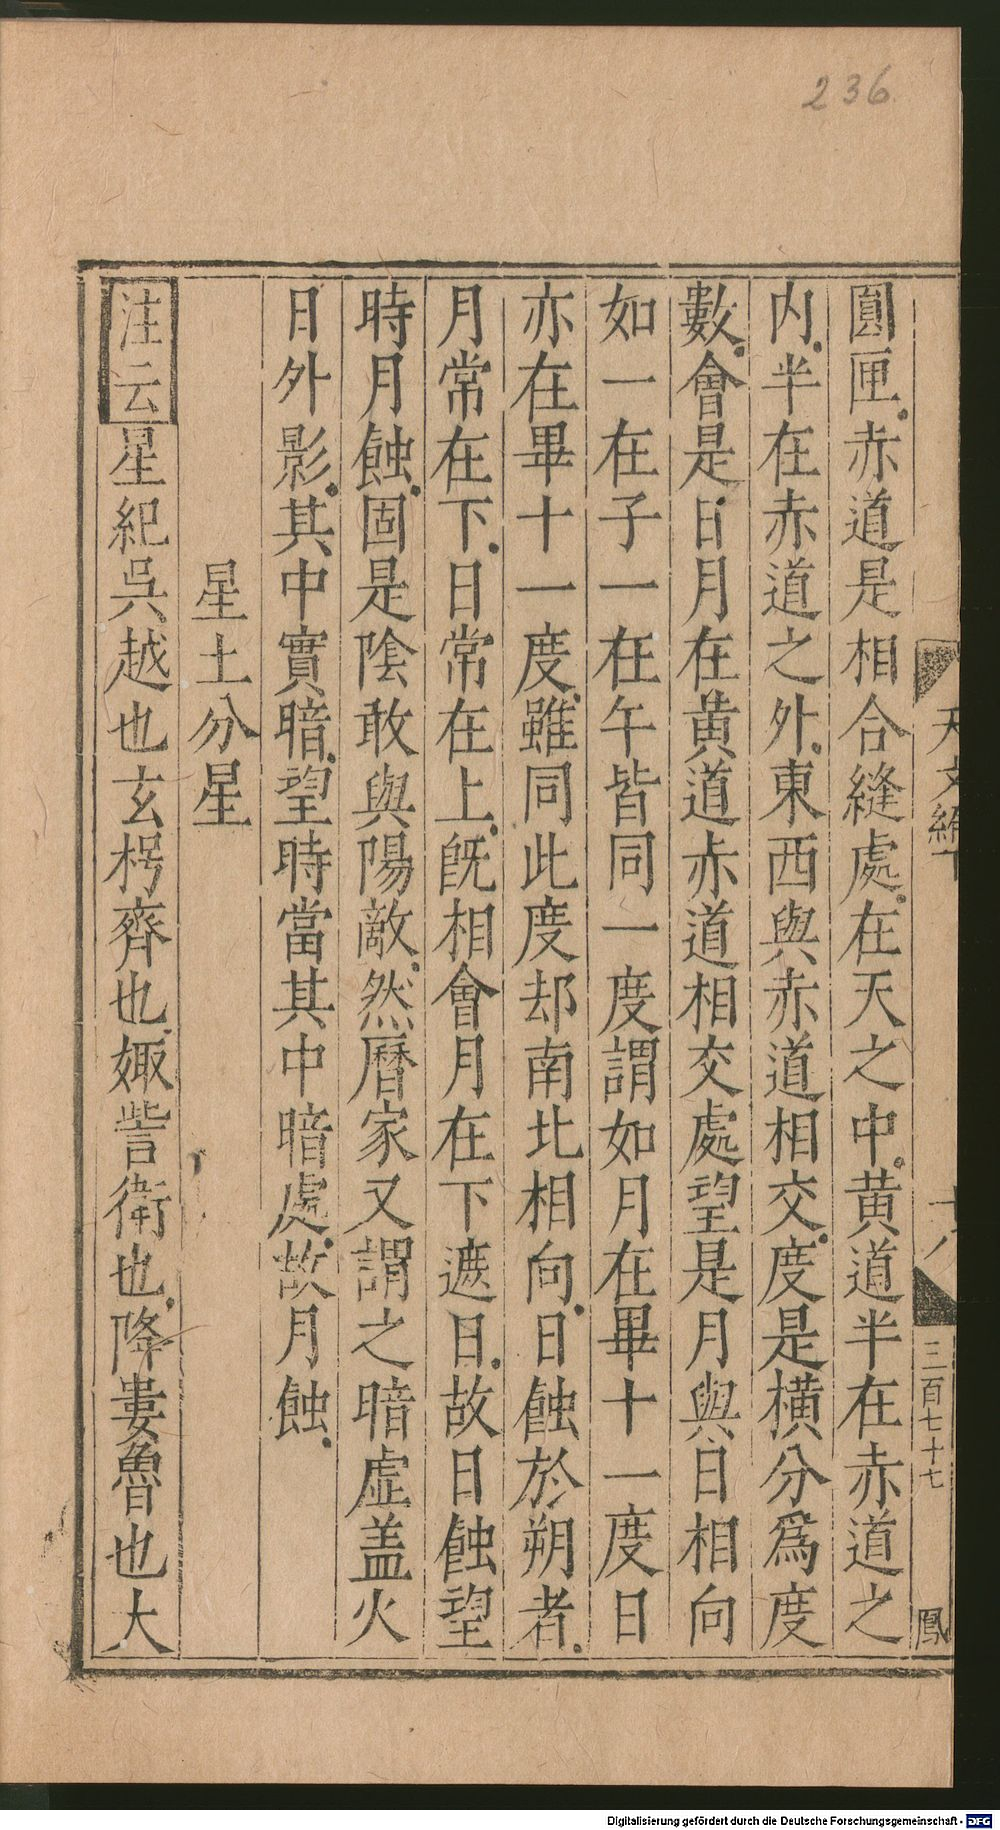 236
天文繪下
十八
三百七十七
鳳
圓匣赤道是相合縫處在天之中黄道半在赤道之
内半在赤道之外東西與赤道相交度是橫分爲度
數會是日月在黄道赤道相交處望是月與日相向
如一在子一在午皆同一度謂如月在畢十一度日
亦在畢十一度雖同此度却南北相向日蝕於朔者
月常在下日常在上旣相會月在下遮日故日蝕望
時月蝕固是陰敢與陽敵然曆家又謂之暗虛盖火
日外影其中實暗望時當其中暗處故月蝕
星土分星
注云星紀吳越也玄枵齊也娵訾衛也降婁魯也大
Digitalisierung gefördert durch die Deutsche Forschungsgemeinschaft - DFG